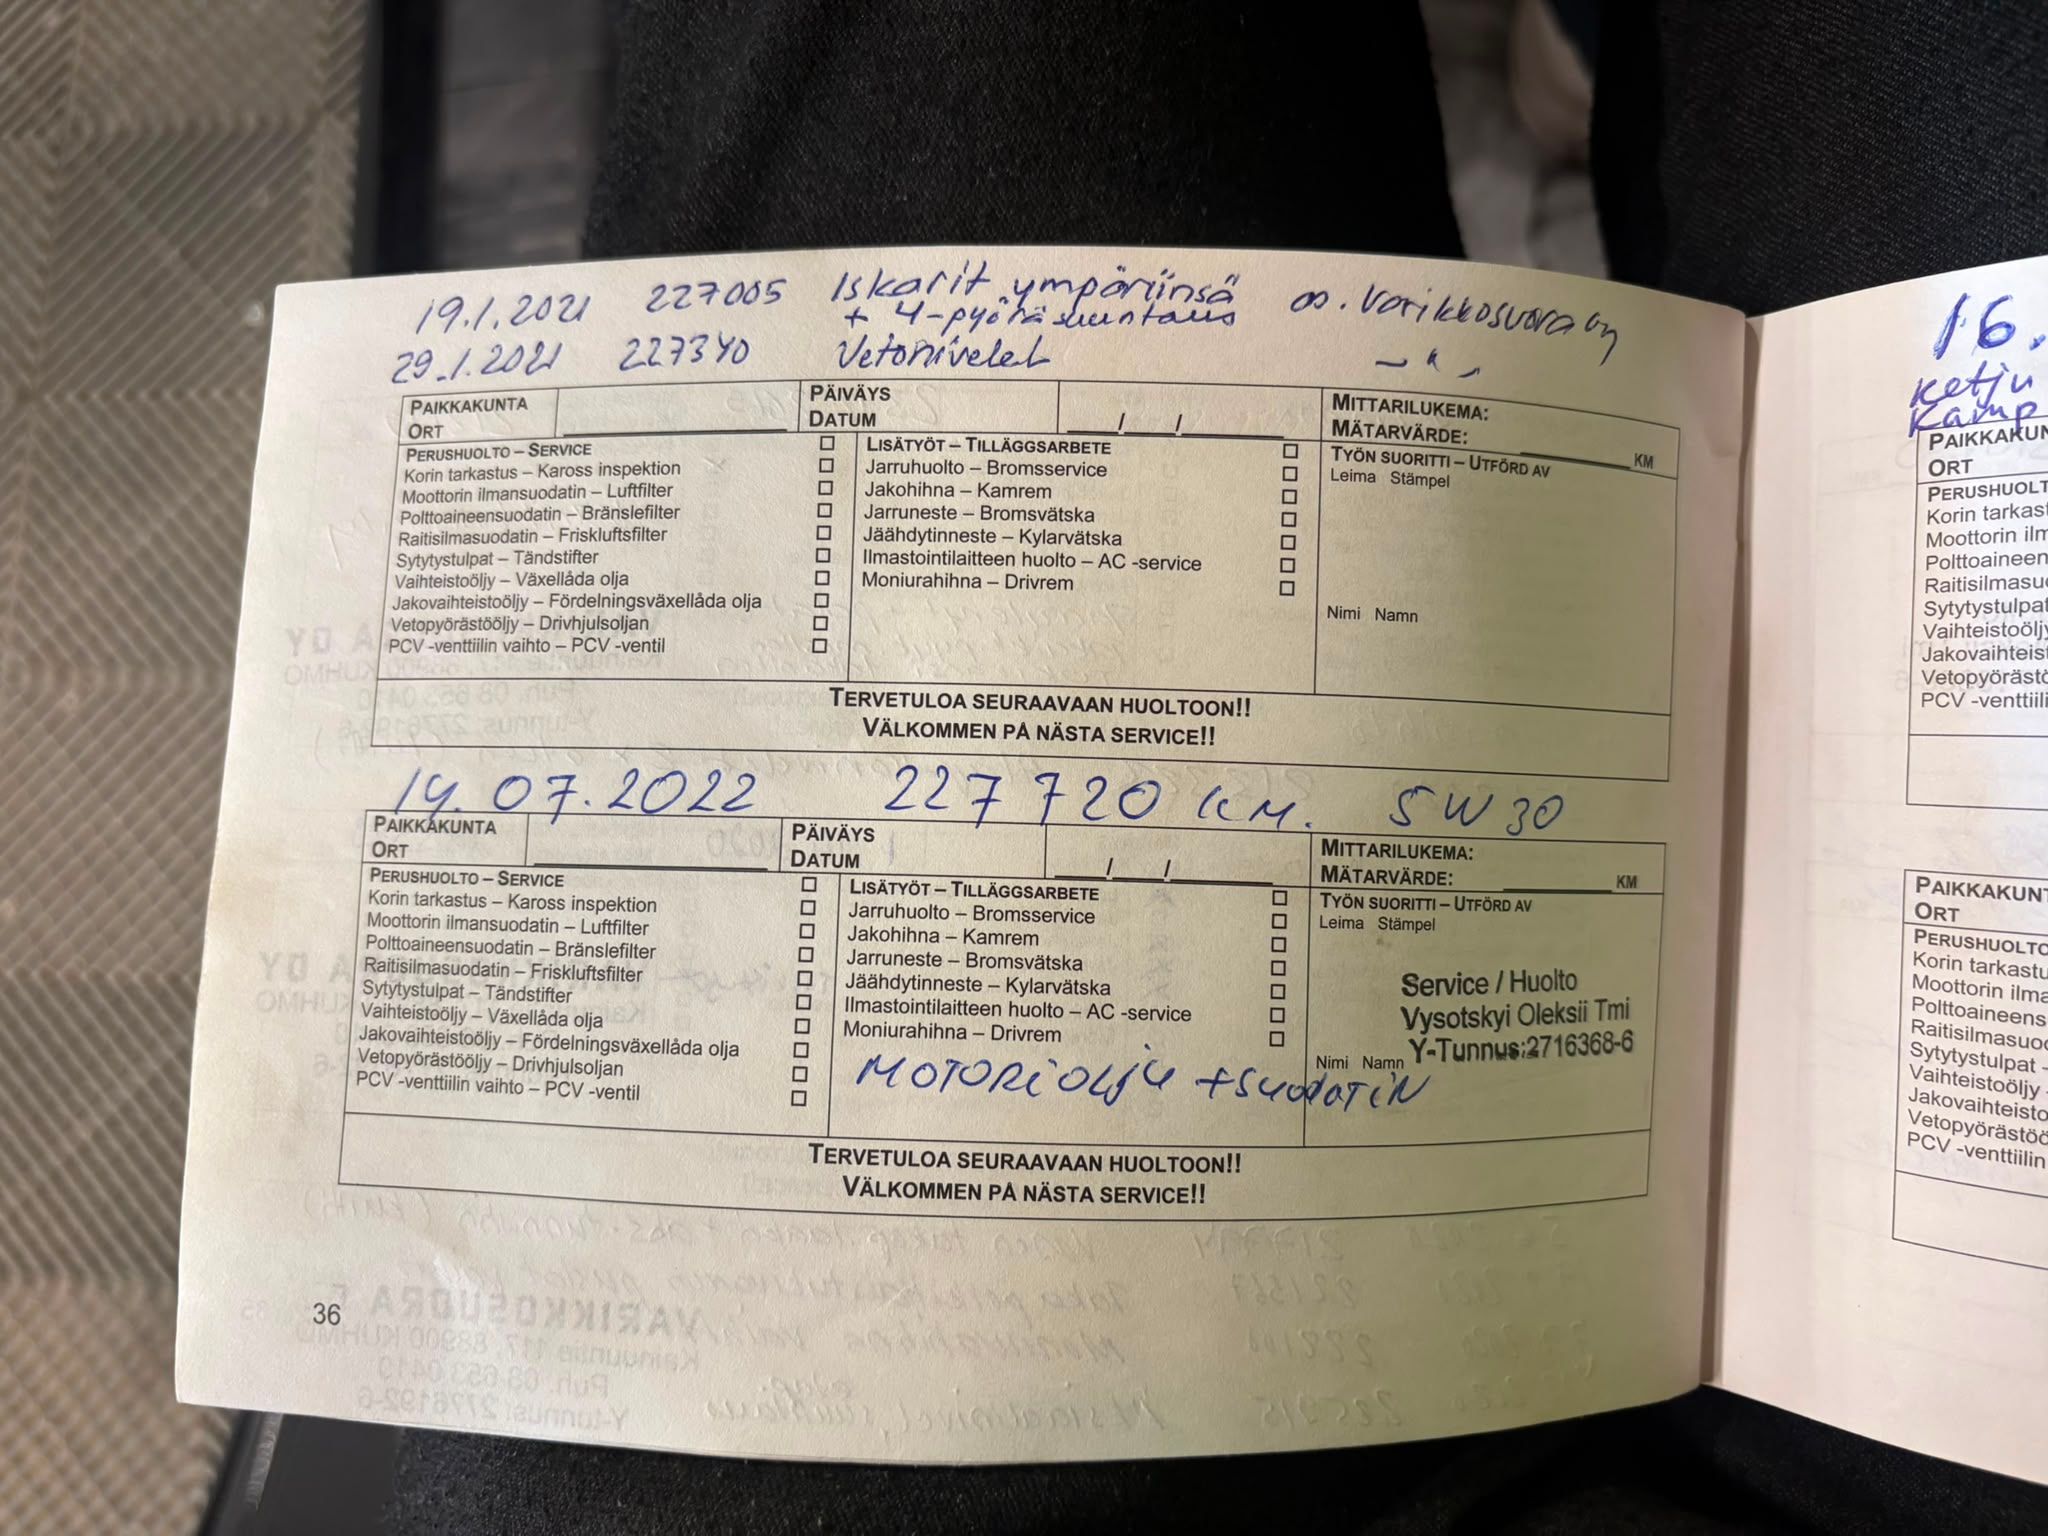 19.1.2021 227005 Iskarit ympäriinsä os. Varikkosuora oy
+ 4-pyöräsuuntaus
29.1.2021 227340 Vetonivelet — " —
PAIKKAKUNTA
ORT
PÄIVÄYS
DATUM
___/___/______
MITTARILUKEMA:
MÄTARVÄRDE: ________ KM
PERUSHUOLTO – SERVICE
Korin tarkastus – Kaross inspektion
Moottorin ilmansuodatin – Luftfilter
Polttoaineensuodatin – Bränslefilter
Raitisilmasuodatin – Friskluftsfilter
Sytytystulpat – Tändstifter
Vaihteistoöljy – Växellåda olja
Jakovaihteistoöljy – Fördelningsväxellåda olja
Vetopyörästööljy – Drivhjulsoljan
PCV -venttiilin vaihto – PCV -ventil
LISÄTYÖT – TILLÄGGSARBETE
Jarruhuolto – Bromsservice
Jakohihna – Kamrem
Jarruneste – Bromsvätska
Jäähdytinneste – Kylarvätska
Ilmastointilaitteen huolto – AC -service
Moniurahihna – Drivrem
TYÖN SUORITTI – UTFÖRD AV
Leima Stämpel
Nimi Namn
TERVETULOA SEURAAVAAN HUOLTOON!!
VÄLKOMMEN PÅ NÄSTA SERVICE!!
14.07.2022 227 720 KM. 5W30
PAIKKAKUNTA
ORT
PÄIVÄYS
DATUM
___/___/______
MITTARILUKEMA:
MÄTARVÄRDE: ________ KM
PERUSHUOLTO – SERVICE
Korin tarkastus – Kaross inspektion
Moottorin ilmansuodatin – Luftfilter
Polttoaineensuodatin – Bränslefilter
Raitisilmasuodatin – Friskluftsfilter
Sytytystulpat – Tändstifter
Vaihteistoöljy – Växellåda olja
Jakovaihteistoöljy – Fördelningsväxellåda olja
Vetopyörästööljy – Drivhjulsoljan
PCV -venttiilin vaihto – PCV -ventil
LISÄTYÖT – TILLÄGGSARBETE
Jarruhuolto – Bromsservice
Jakohihna – Kamrem
Jarruneste – Bromsvätska
Jäähdytinneste – Kylarvätska
Ilmastointilaitteen huolto – AC -service
Moniurahihna – Drivrem
MOTORiOLjU +SUODATiN
TYÖN SUORITTI – UTFÖRD AV
Leima Stämpel
Service / Huolto
Vysotskyi Oleksii Tmi
Y-Tunnus:2716368-6
Nimi Namn
TERVETULOA SEURAAVAAN HUOLTOON!!
VÄLKOMMEN PÅ NÄSTA SERVICE!!
36
16.
Ketju
Kamp
PAIKKAKUN
ORT
PERUSHUOLT
Korin tarkast
Moottorin ilm
Polttoaineen
Raitisilmasuo
Sytytystulpat
Vaihteistoöljy
Jakovaihteist
Vetopyörästö
PCV -venttiili
PAIKKAKUNT
ORT
PERUSHUOLTO
Korin tarkastu
Moottorin ilma
Polttoaineens
Raitisilmasuo
Sytytystulpat –
Vaihteistoöljy
Jakovaihteisto
Vetopyörästöö
PCV -venttiilin